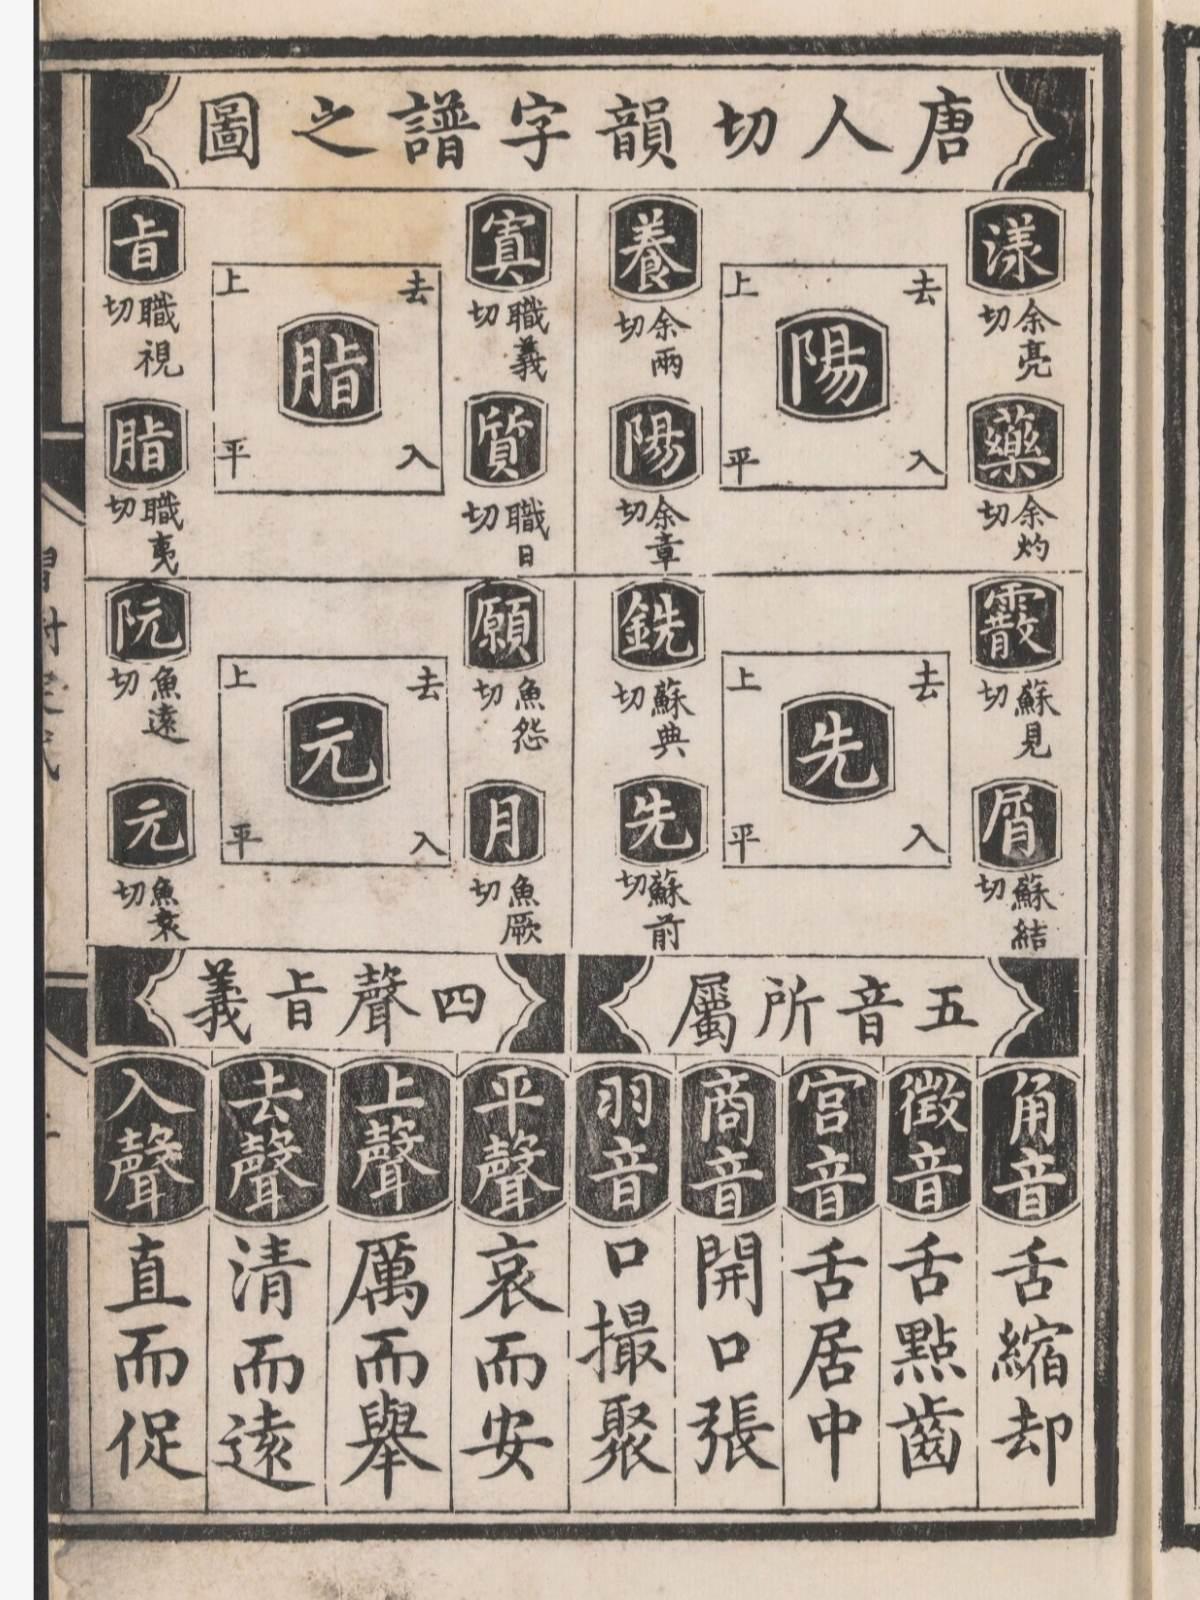 唐人切韻字譜之圖
漾
余亮切
藥
余灼切
去
入
陽
上
平
養
余兩切
陽
余章切
寘
職義切
質
職日切
去
入
脂
上
平
㫖
職視切
脂
職夷切
霰
蘇見切
屑
蘇結切
去
入
先
上
平
銑
蘇典切
先
蘇前切
願
魚怨切
月
魚厥切
去
入
元
上
平
阮
魚遠切
元
魚袁切
五音所屬
角音
舌縮却
徵音
舌點齒
宮音
舌居中
商音
開口張
羽音
口撮聚
四聲㫖義
平聲
哀而安
上聲
厲而舉
去聲
清而遠
入聲
直而促